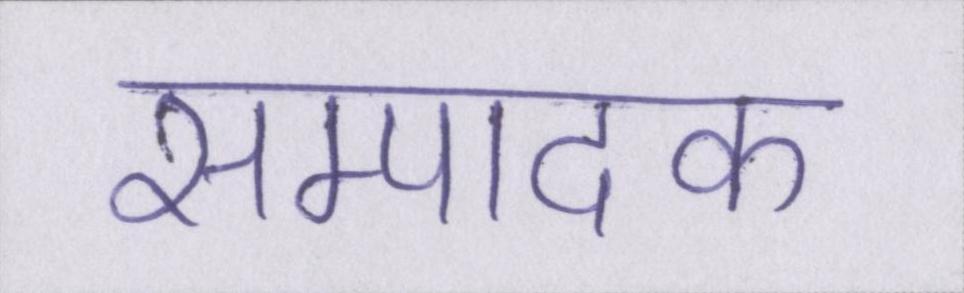 सम्पादक